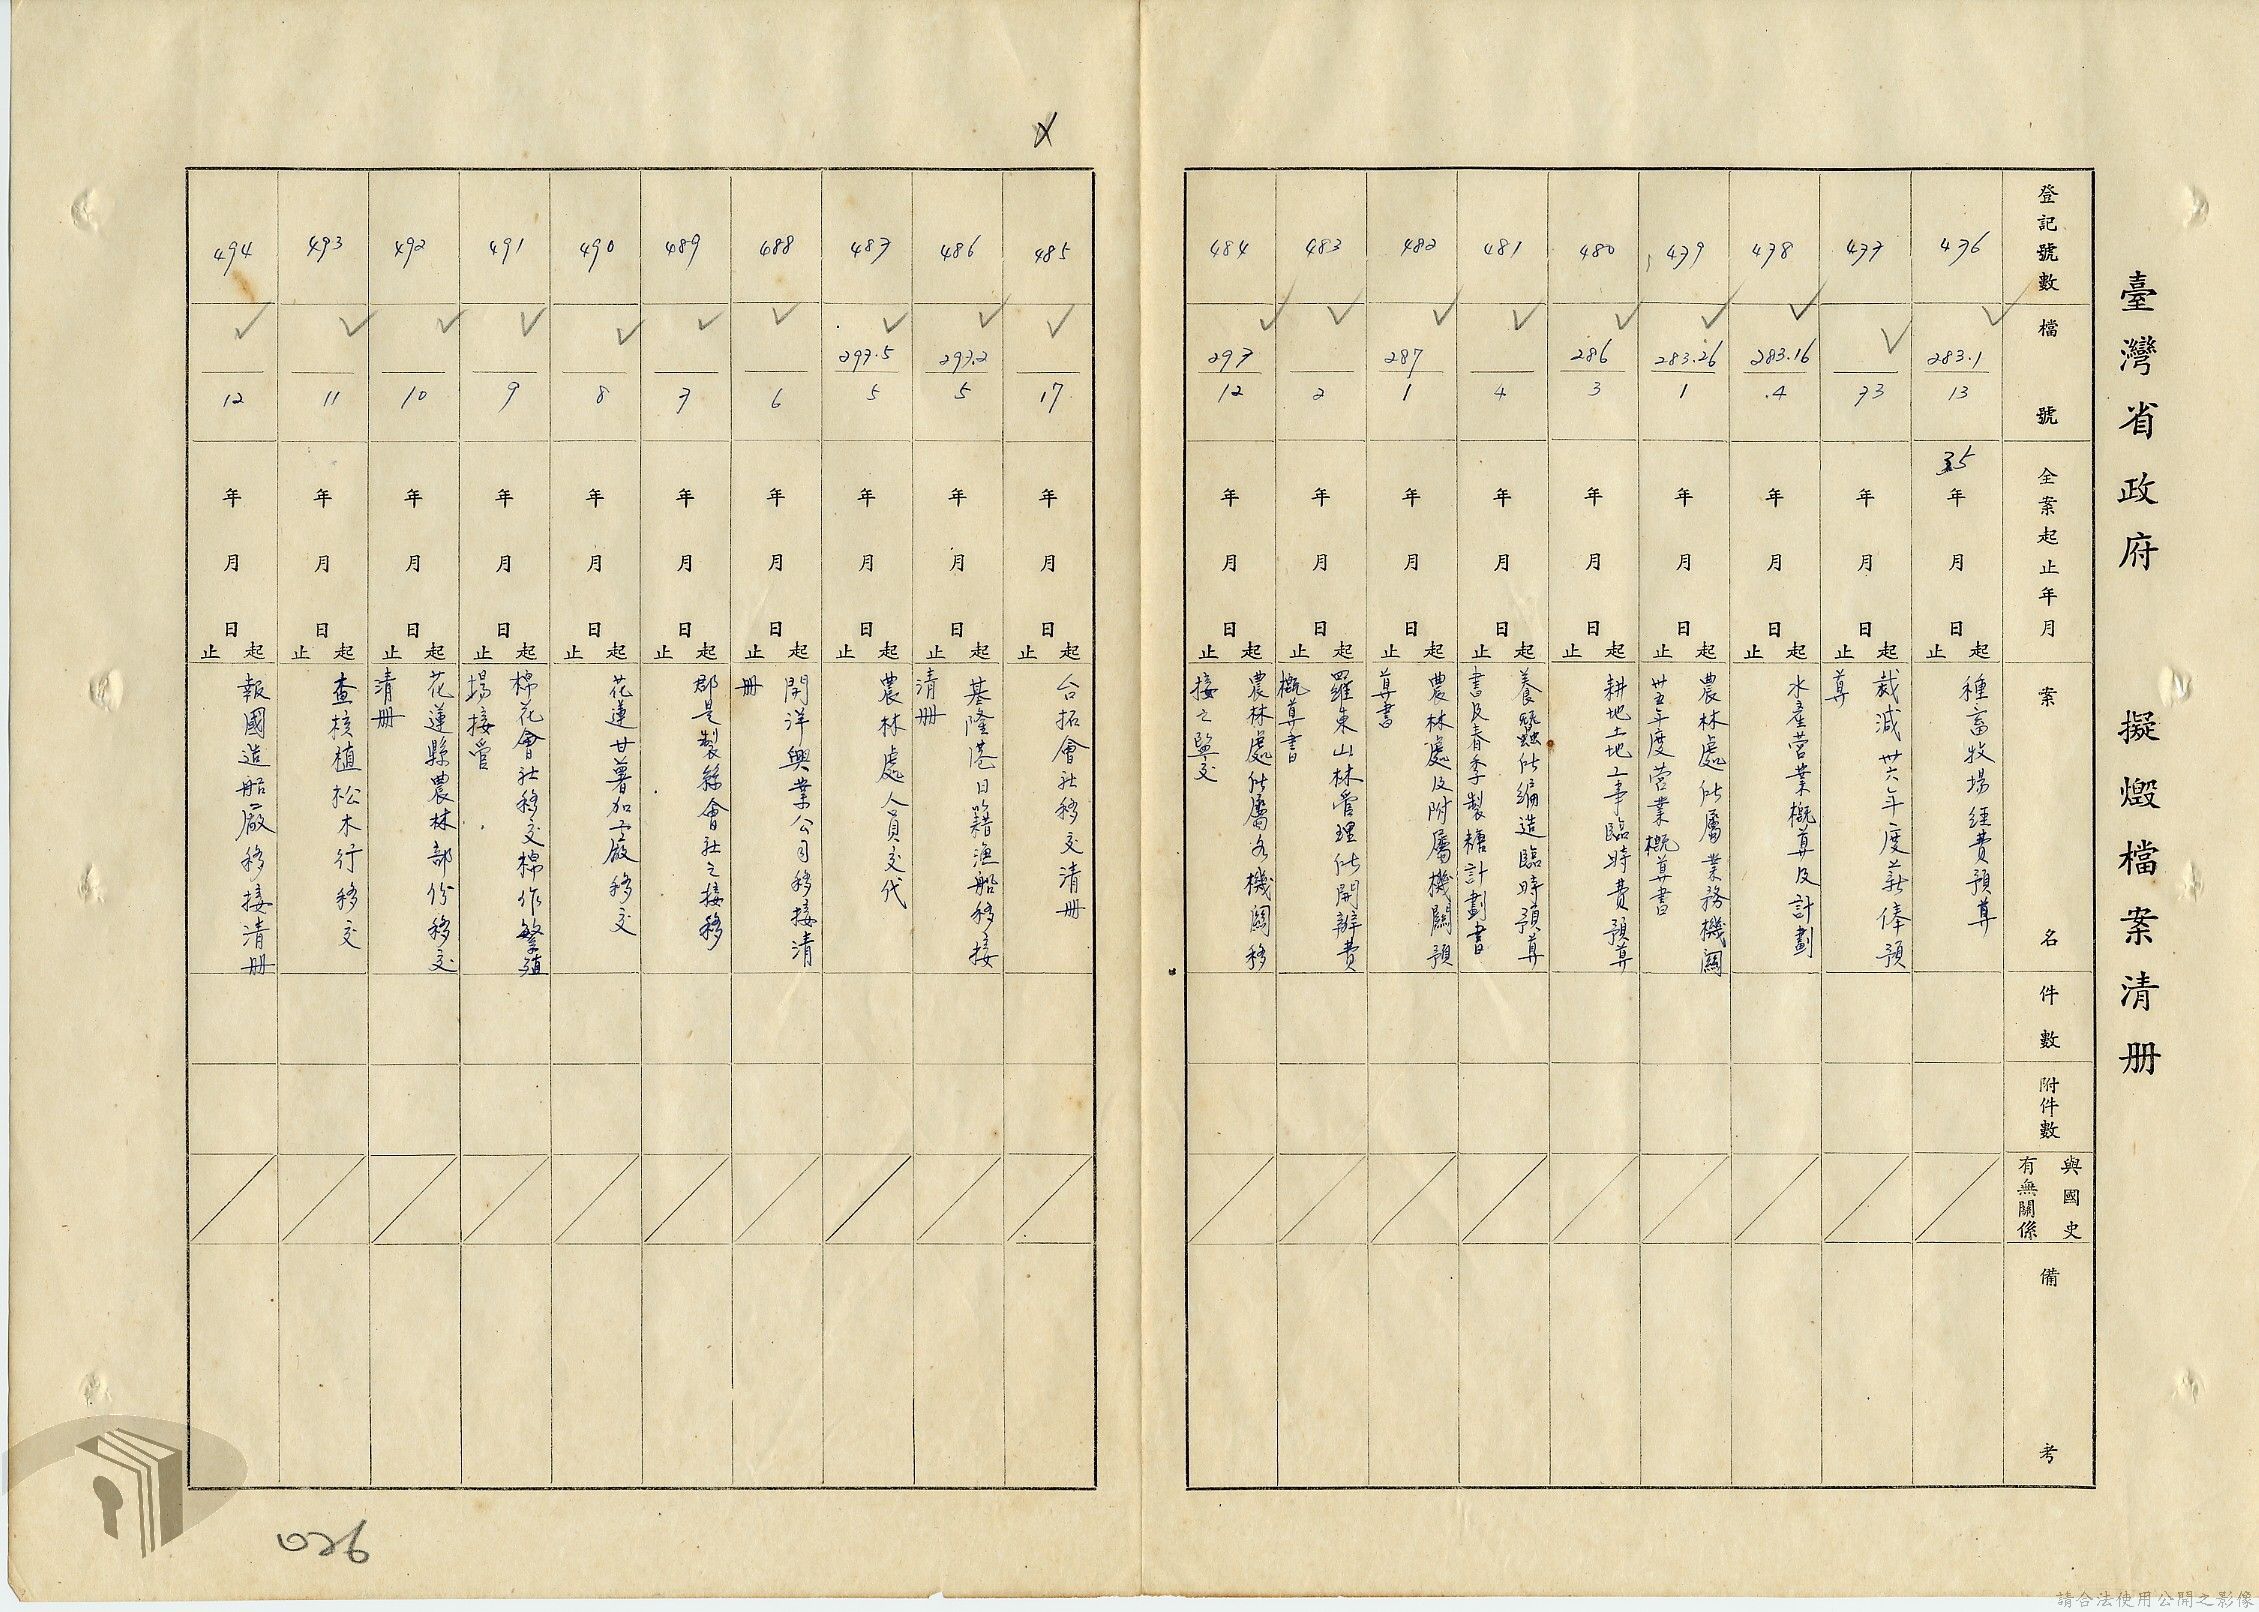 臺灣省政府 擬燬檔案清册
登記號數
檔號
全案起止年月
案名
件數
附件數
與國史
有無關係
備考
476
283.1
13
35年月日起止
種畜牧場經費預算
477
73
年月日起止
裁減卅六年度薪俸預
算
478
283.16
4
年月日起止
水產营業概算及計劃
479
283.26
1
年月日起止
農林處所屬業務機關
卅五年度营業概算書
480
286
3
年月日起止
耕地土地工事臨時費預算
481
4
年月日起止
養蠶所编造臨時預算
書及春季製種計劃書
482
287
1
年月日起止
農林處及附屬機關預
算書
483
2
年月日起止
羅東山林管理所開辦費
概算書
484
297
12
年月日起止
農林處所屬各機關移
接之監交
485
17
年月日起止
台拓會社移交清册
486
297.2
5
年月日起止
基隆港日籍漁船移接
清册
487
297.5
5
年月日起止
農林處人員交代
488
6
年月日起止
開洋興業公司移接清
册
489
7
年月日起止
郡是製絲會社之接移
490
8
年月日起止
花蓮甘薯加工廠移交
491
9
年月日起止
棉花會社移交棉作繁殖
場接管
492
10
年月日起止
花蓮縣農林部份移交
清册
493
11
年月日起止
查核植松木行移交
494
12
年月日起止
報國造船廠移接清册
026
請合法使用公開之影像